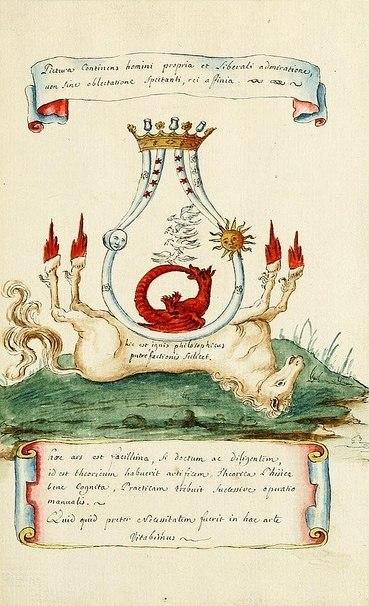 Pictura Continens homini propria et Liberali admiratione,
non sine oblectatione Spectanti, rei affinia.
hic est ignis philosophicus
putrefactionis scilicet.
Haec ars est facillima, si doctum ac diligentem,
id est theoricum habuerit artificem, theorica Phisice
bene Cognita, Practicam tribuit Successive operatio
manualis.
Quid quid preter Necessitatem fuerit in hac arte
Vitabimus